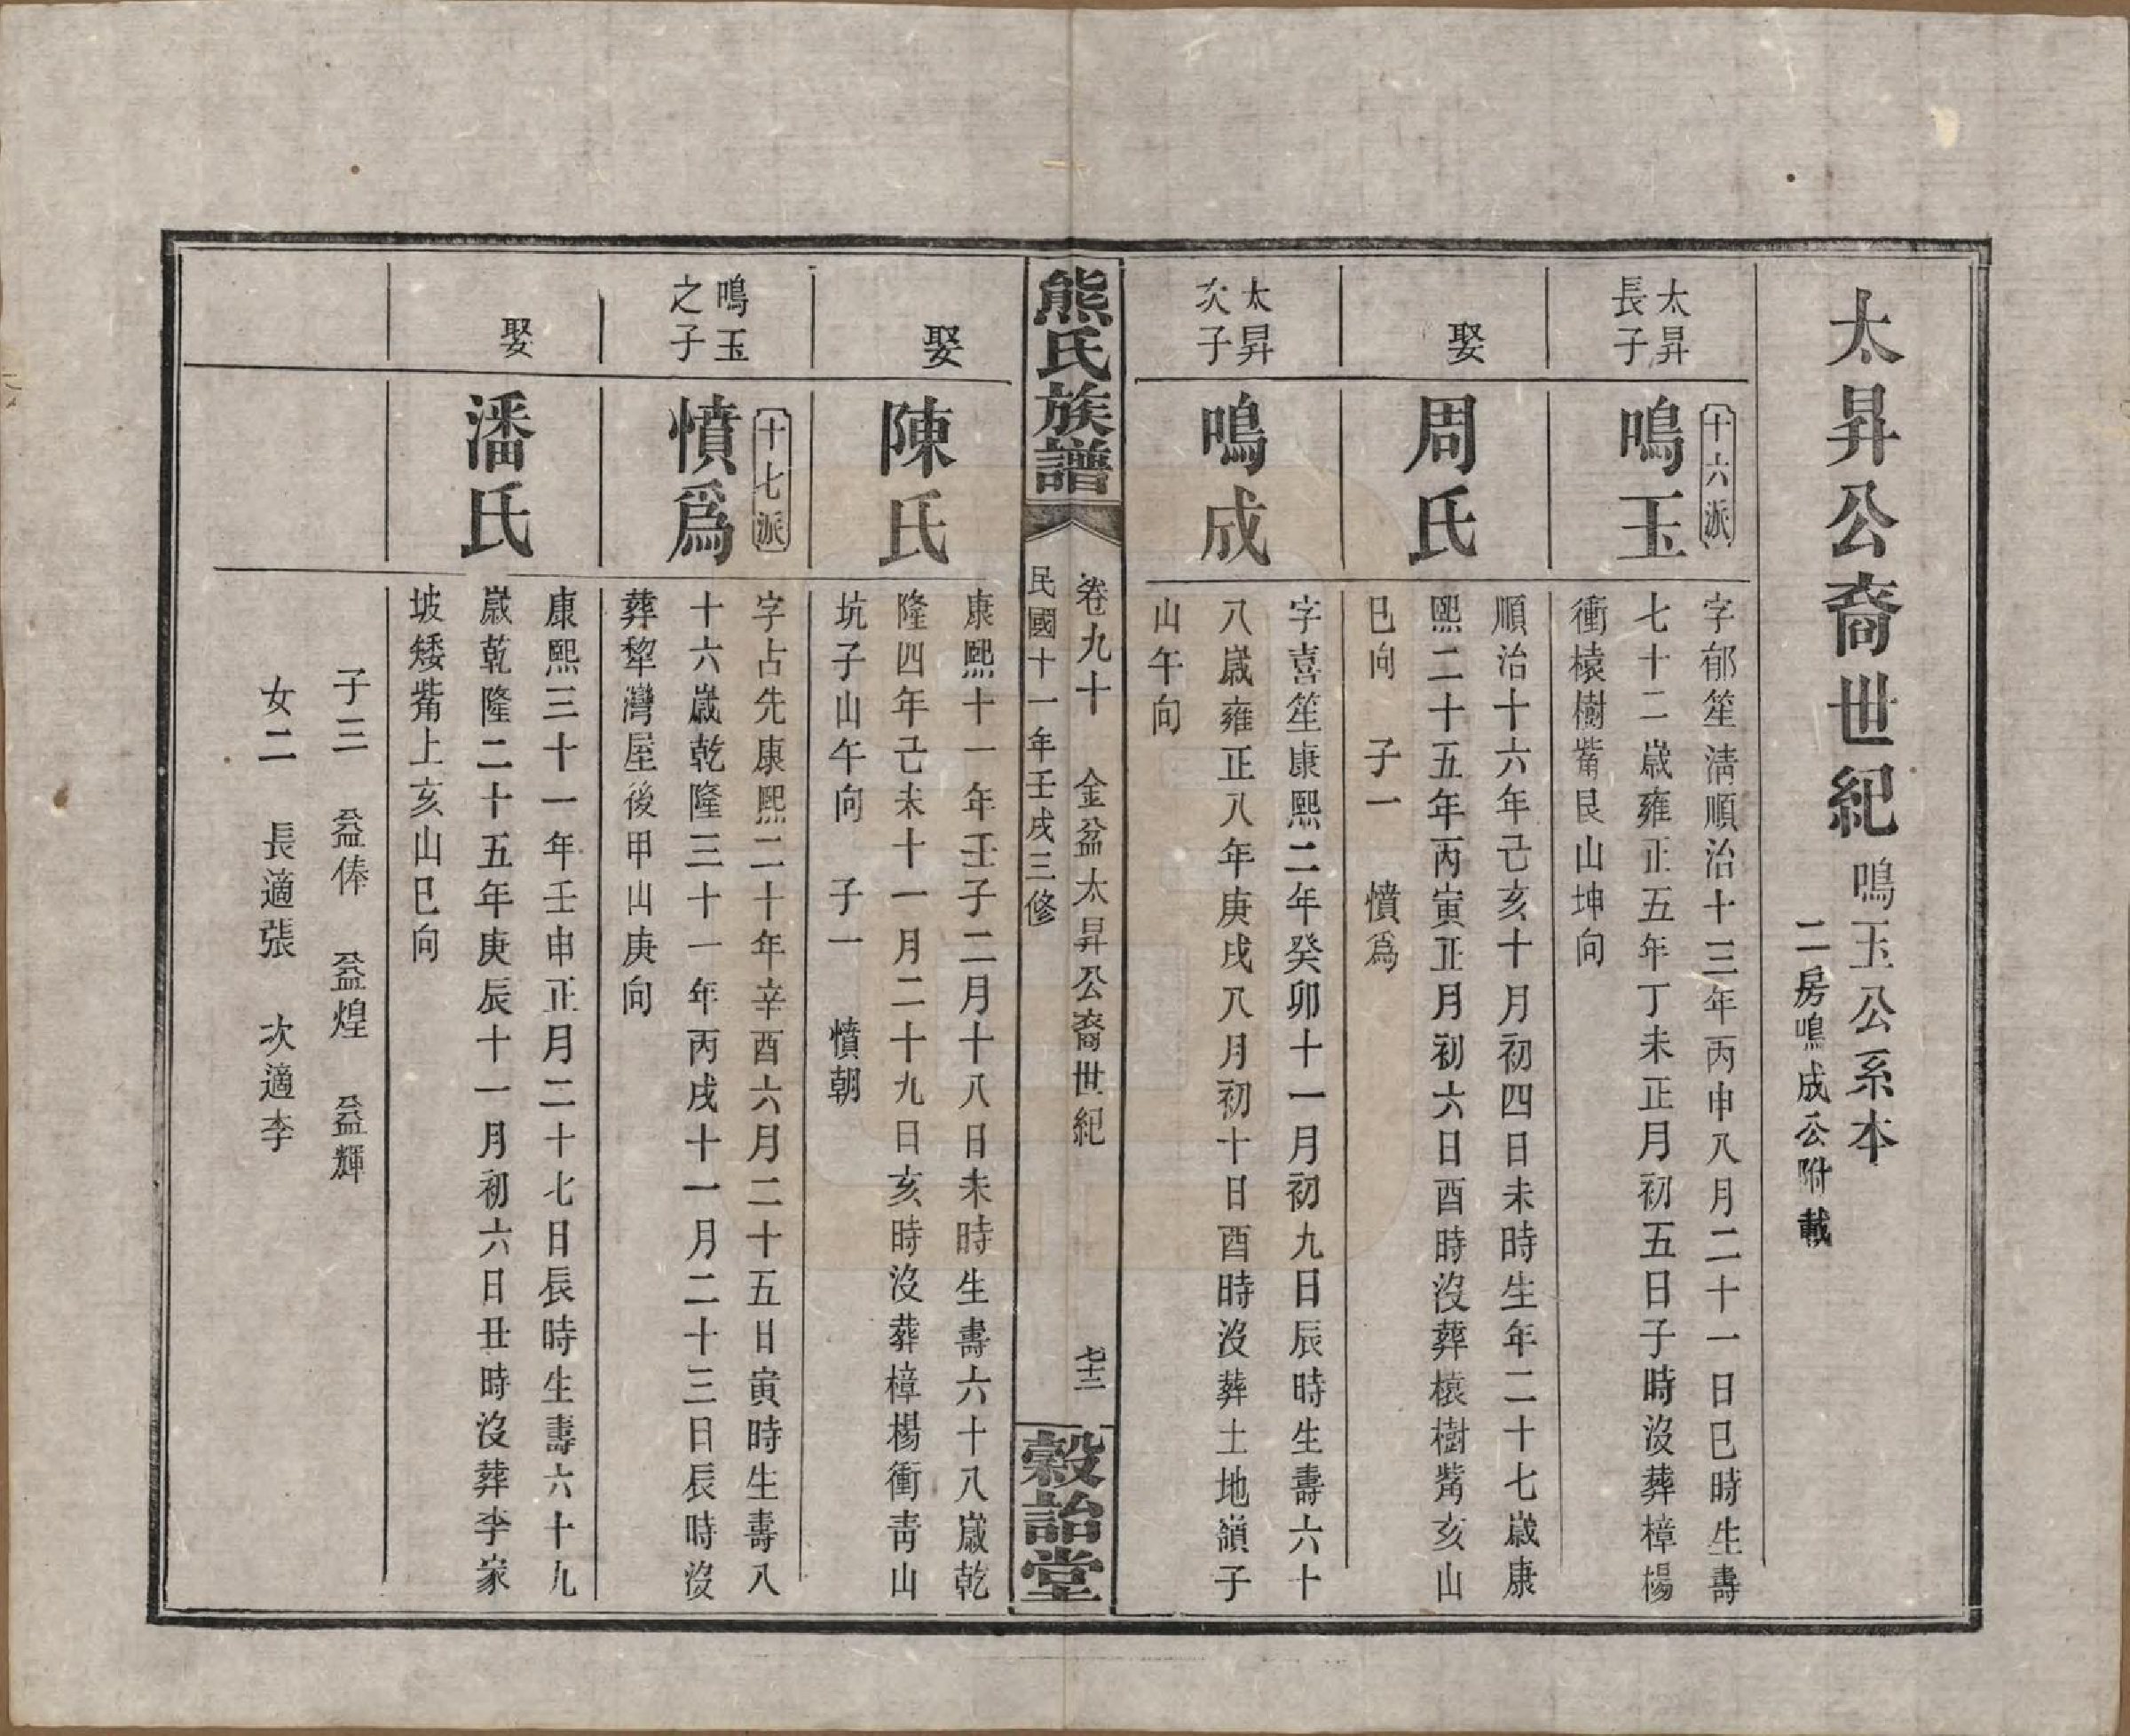 太昇公裔世紀
鳴玉公系本
二房鳴成公附載
太昇
長子
十六派
鳴玉
字郁笙淸順治十三年丙申八月二十一日巳時生壽
七十二歲雍正五年丁未正月初五日子時沒葬樟楊
衝榬樹觜艮山坤向
娶
周氏
順治十六年己亥十月初四日未時生年二十七歲康
熙二十五年丙寅正月初六日酉時沒葬榬樹觜亥山
巳向 子一 憤爲
太昇
次子
鳴成
字喜笙康熙二年癸卯十一月初九日辰時生壽六十
八歲雍正八年庚戌八月初十日酉時沒葬土地嶺子
山午向
熊氏族譜
卷九十 金盆太昇公裔世紀
民國十一年壬戌三修
七十二
穀詒堂
娶
陳氏
康熙十一年壬子二月十八日未時生壽六十八歲乾
隆四年己未十一月二十九日亥時沒葬樟楊衝靑山
坑子山午向 子一 憤朝
鳴玉
之子
十七派
憤爲
字占先康熙二十年辛酉六月二十五日寅時生壽八
十六歲乾隆三十一年丙戌十一月二十三日辰時沒
葬犂灣屋後甲山庚向
娶
潘氏
康熙三十一年壬申正月二十七日辰時生壽六十九
歲乾隆二十五年庚辰十一月初六日丑時沒葬李家
坡矮觜上亥山巳向
子三 益俸 益煌 益輝
女二 長適張 次適李